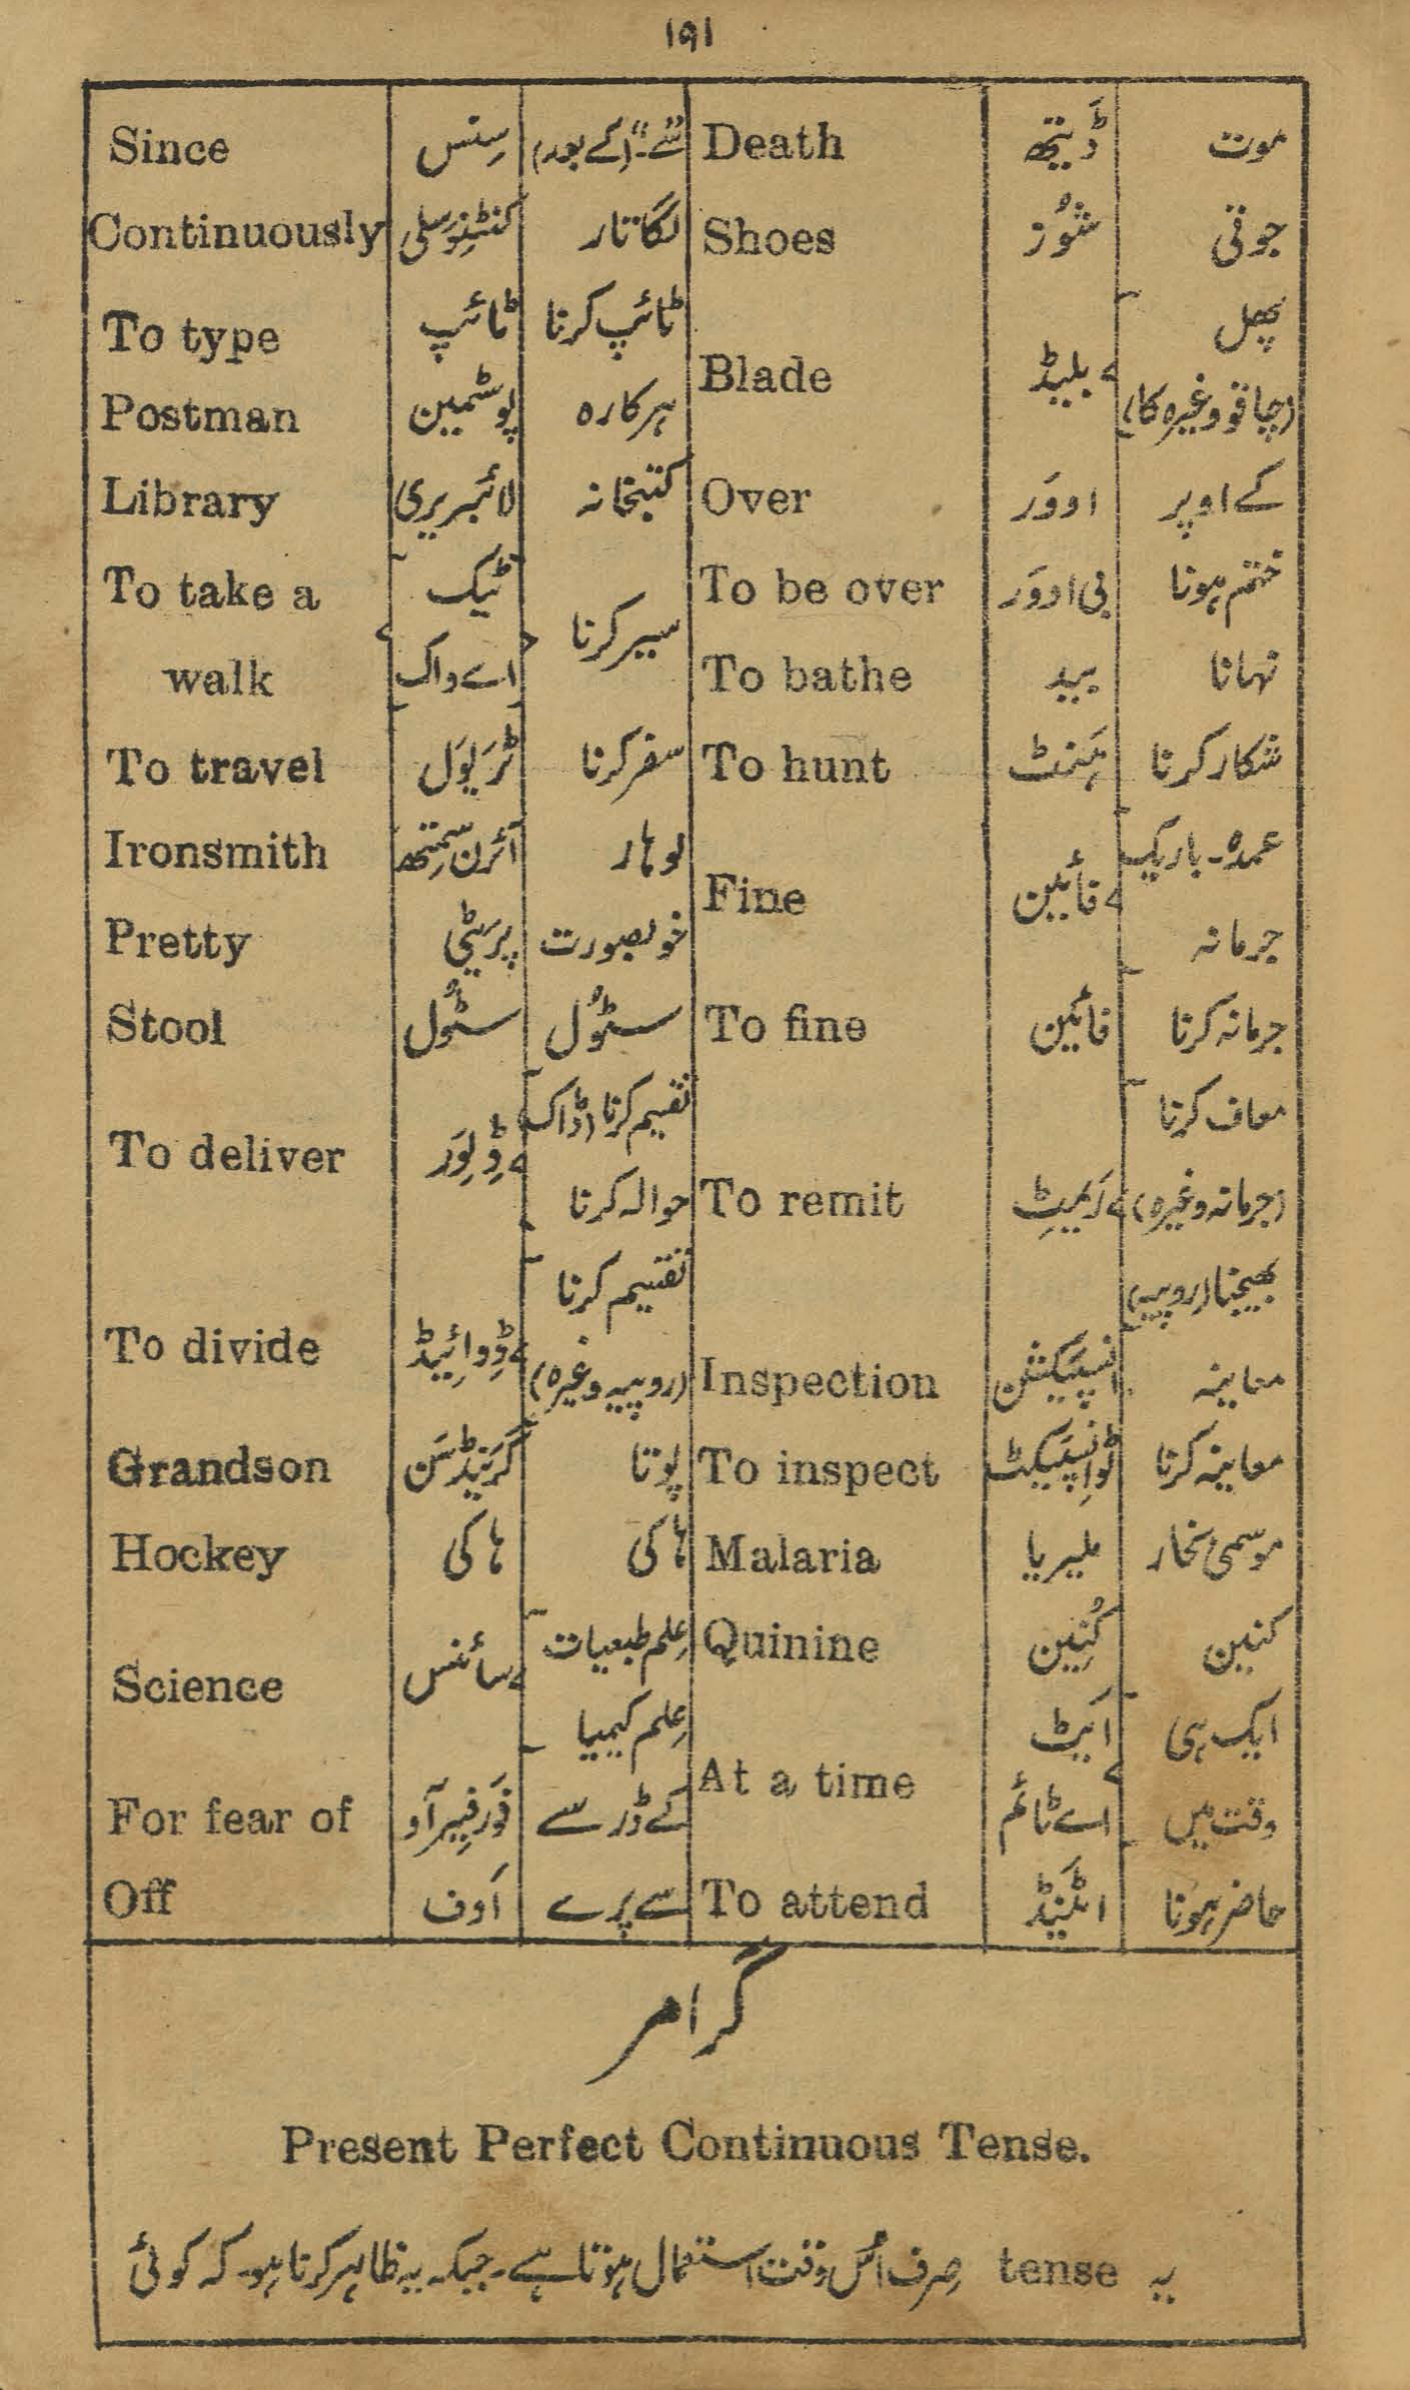 ۱۹۱
Since سِنس سے۔"(کے بعد) Death ڈَیتھ موت
Continuously کنٹِنیُوسلی لگاتار Shoes شُوز جوتی
To type ٹائپ ٹائپ کرنا Blade بلیڈ پھل
Postman پوسٹمین ہرکارہ (چاقو وغیرہ کا)
Library لائبریری کتبخانہ Over اووَر کے اوپر
To take a ٹیک سیر کرنا To be over بی اووَر ختم ہونا
walk اے واک To bathe بید نہانا
To travel ٹرَیوَل سفر کرنا To hunt ہَنٹ شکار کرنا
Ironsmith آئرن سمِتھ لوہار Fine فائین عمدہ۔ باریک
Pretty پرَیٹی خوبصورت جرمانہ
Stool سٹُول سٹُول To fine فائین جرمانہ کرنا
To deliver ڈِلِوَر تقسیم کرنا (ڈاک) To remit رَیمِٹ معاف کرنا
حوالہ کرنا (جرمانہ وغیرہ)
To divide ڈِوائیڈ تقسیم کرنا بھیجنا (روپیہ)
(روپیہ وغیرہ) Inspection انسپَیکشن معاینہ
Grandson گرَینڈسَن پوتا To inspect ٹُو انسپَیکٹ معاینہ کرنا
Hockey ہاکی ہاکی Malaria ملیریا موسمی بخار
Science سائنس عِلم طبعیات Quinine کُنِین کنین
عِلم کیمیا At a time اَیٹ ایک ہی
For fear of فَورفِیرآو کے ڈر سے اے ٹائم وقت میں
Off اَوف سے پرے To attend اٹَینڈ حاضر ہونا
گرامر
Present Perfect Continuous Tense.
یہ tense صِرف اُس وقت استعمال ہوتا ہے۔ جبکہ یہ ظاہر کرنا ہو۔ کہ کوئی